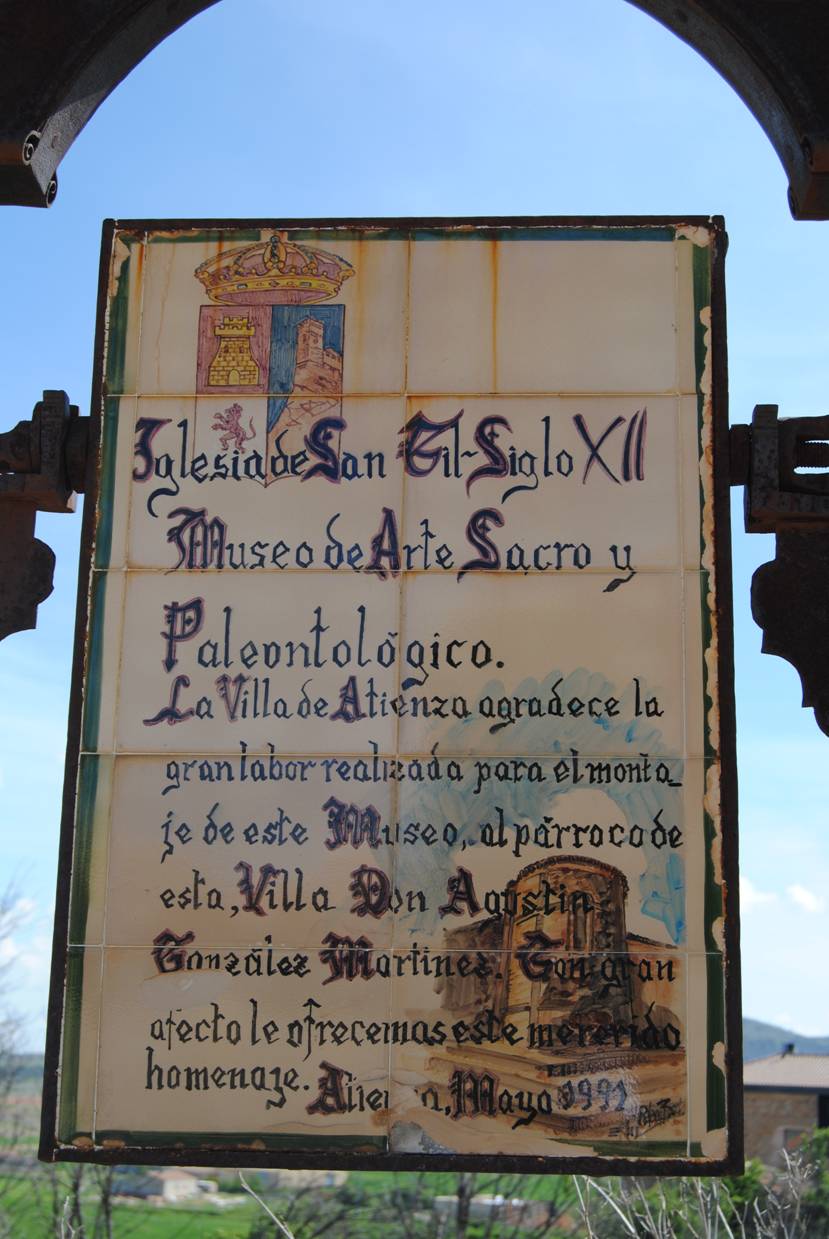 Iglesia de San Gil-Siglo XII
Museo de Arte Sacro y
Paleontológico.
La Villa de Atienza agradece la
gran labor realizada para el monta_
je de este Museo, al párroco de
esta, Villa Don Agustin
González Martinez. Con gran
afecto le ofrecemos este merecido
homenaje. Atienza, Mayo 1991